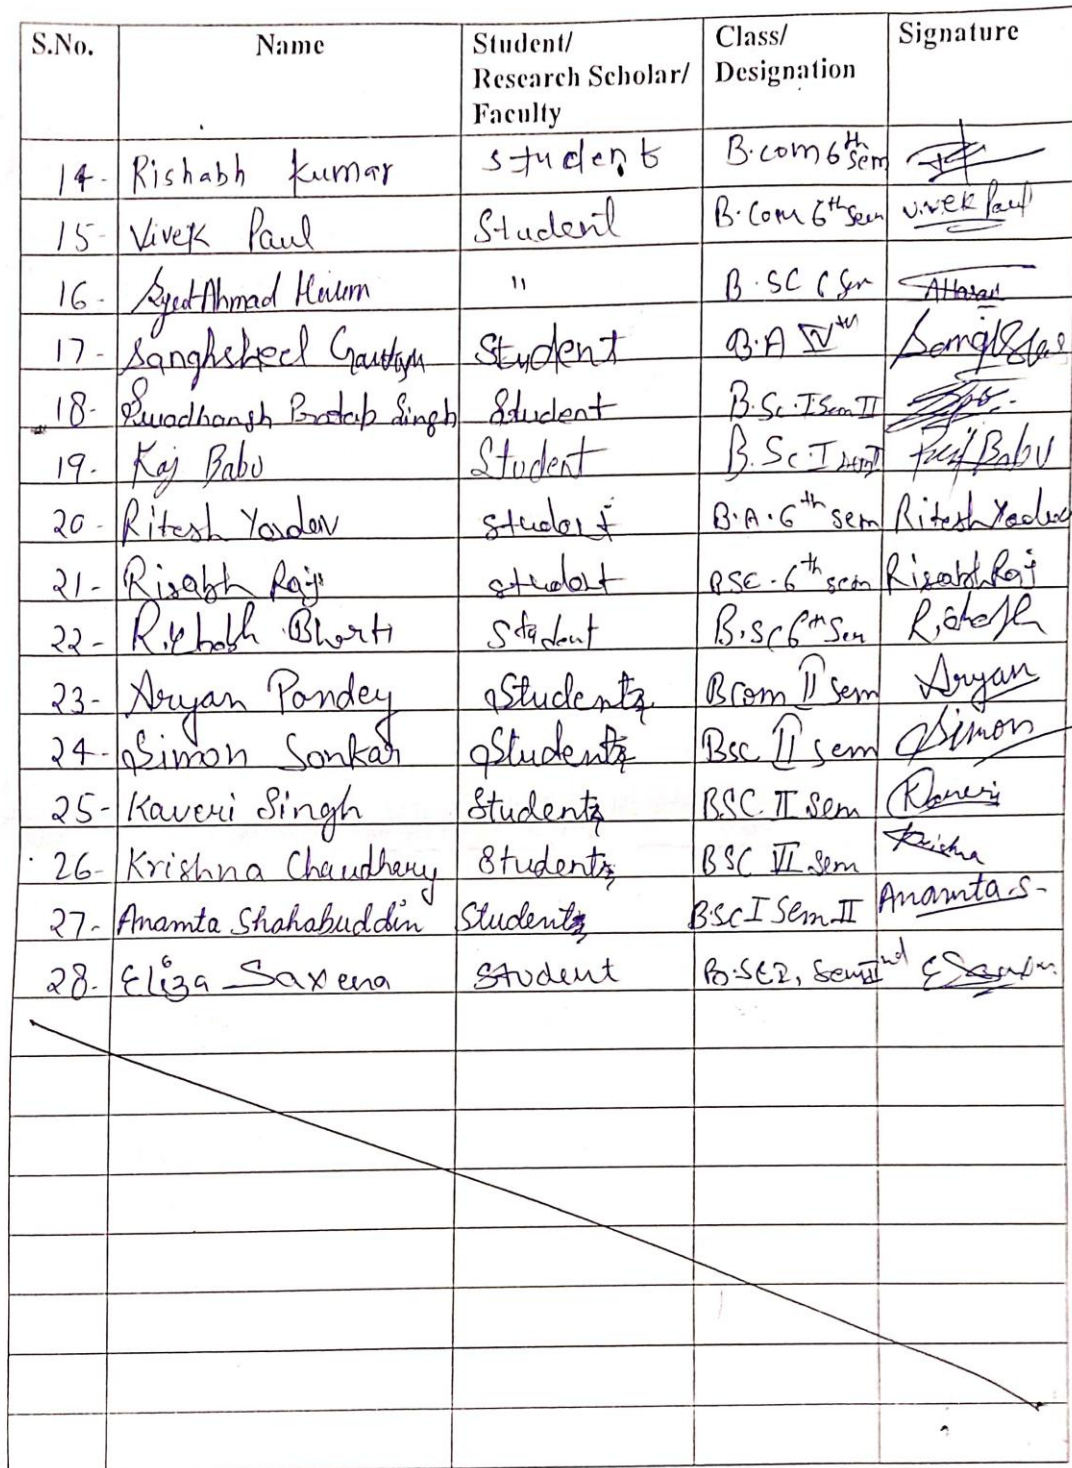 S.No. Name Student/ Research Scholar/ Faculty Class/ Designation Signature
14- Rishabh kumar student B.com 6th sem
15- Vivek Paul Student B.Com 6th Sem Vivek Paul
16- Syed Ahmad " B.SC 6 Sem AHasan
17- Sanghsheel Gautam Student B.A IVth
18- Swadhansh Pratap Singh Student B.Sc. I Sem II
19- Raj Babu Student B.Sc I Raj Babu
20- Ritesh Yadav student B.A. 6th sem Ritesh Yadav
21- Risabh Raj student BSC. 6th sem Risabh Raj
22- Rishabh Bharti Student B.Sc 6th Sem Rishabh
23- Aryan Pandey Student Bcom II sem Aryan
24- Simon Sonkar Student Bsc II sem Simon
25- Kaveri Singh Student BSC II Sem Kaveri
26- Krishna Chaudhary Student BSC VI Sem Krishna
27- Anamta Shahabuddin Student B.Sc I Sem II Anamta.S-
28- Eliza Saxena Student